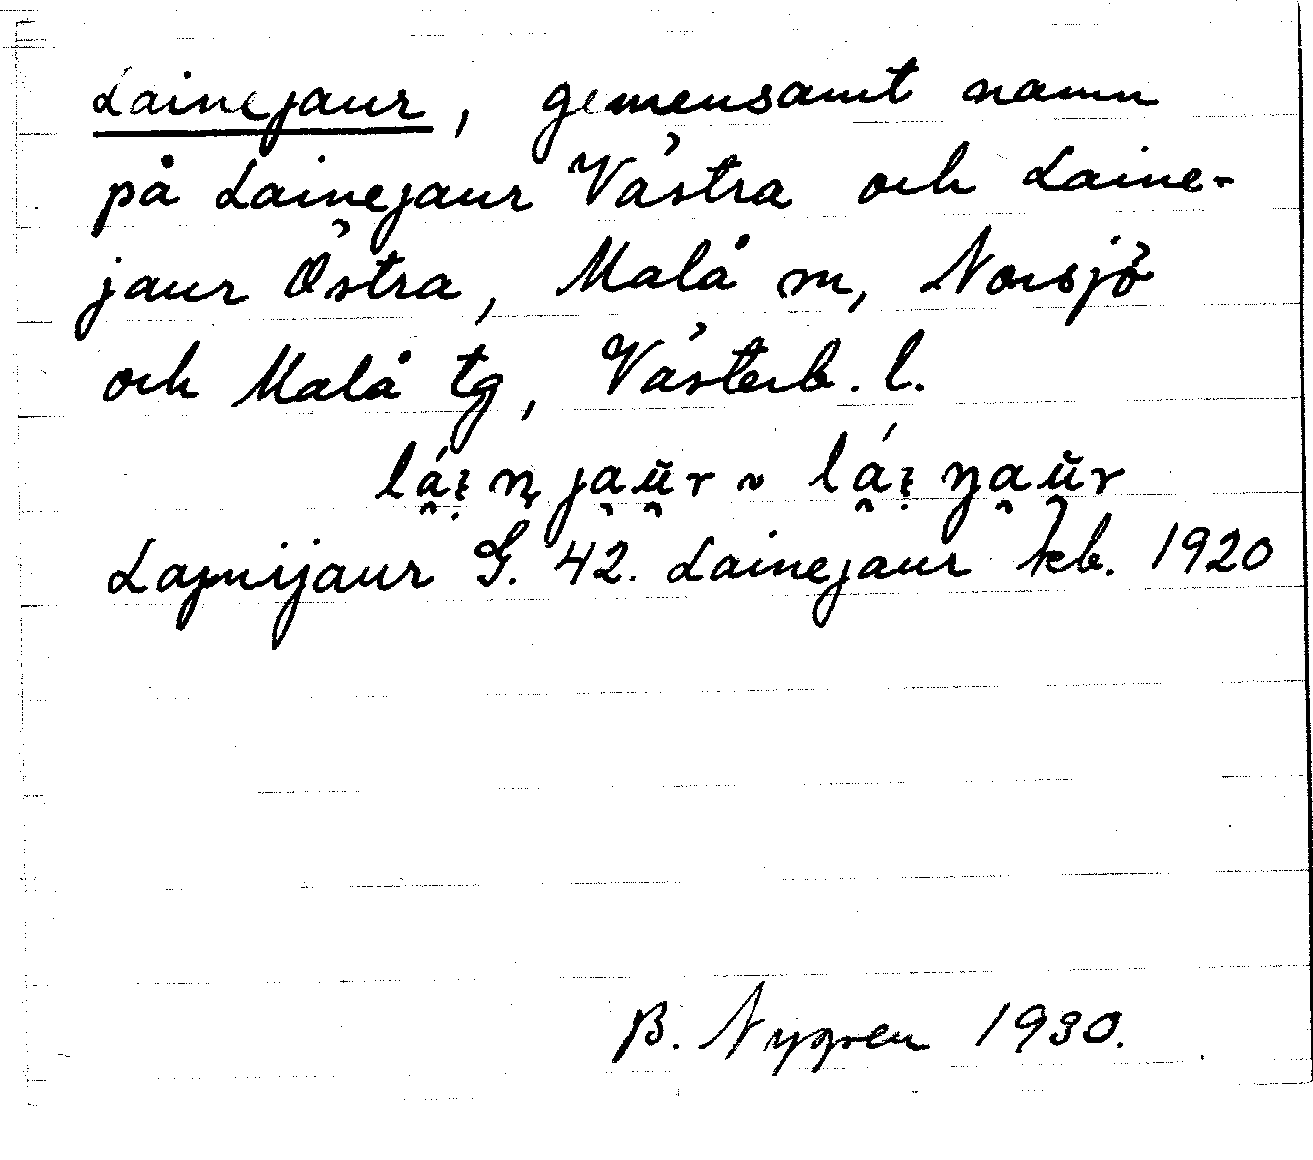 Lainejaur, gemensamt namn
på Lainejaur Västra och Laine-
jaur Östra, Malå m, Norsjö
och Malå tg, Västerb. l.
Lajnijaur G. 42. Lainejaur kb. 1920
B. Nygren 1930.